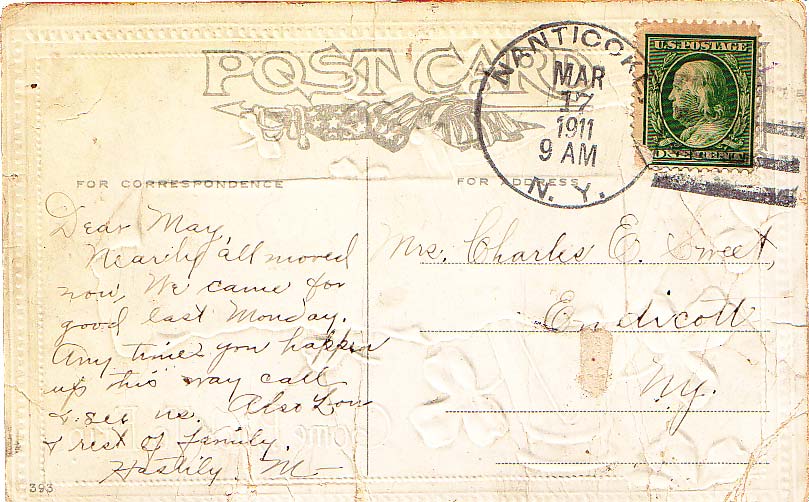 POST CARD
NANTICOKE,
MAR
17
1911
9 AM
N. Y.
U.S. POSTAGE
FOR CORRESPONDENCE
FOR ADDRESS
Dear May,
Nearily all moved
now, We came for
good last Monday.
Any time you happen
up this way call
& see us. Also Lou
& rest of family.
Hastily, M
Mrs. Charles E. Sweet,
Endicott
Ny.
393